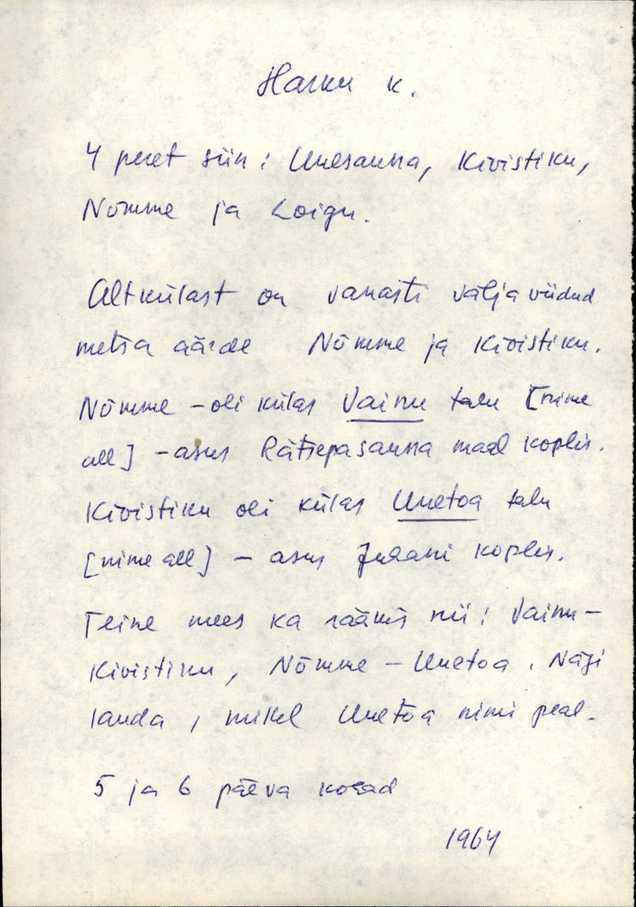 Harku k.
4 peret siin: Unesauna, Kivistiku,
Nõmme ja Loigu.
Altkülast on vanasti välja viidud
metsa äärde Nõmme ja Kivistiku.
Nõmme - oli külas Vainu talu [nime
all] - asus Rätsepasauna maal koplis.
Kivistiku oli külas Unetoa talu
[nime all] - asus Juhani koplis.
Teine mees ka rääkis nii: Vainu-
Kivistiku, Nõmme - Unetoa. Nägi
lauda, mikel Unetoa nimi peal.
5 ja 6 päeva kohad
1964